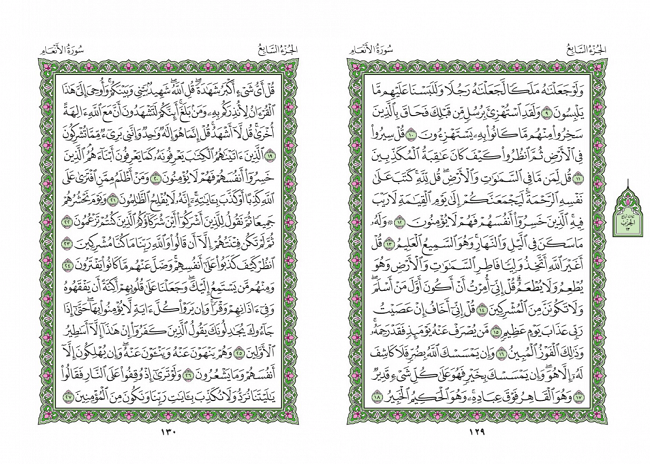 الجُزْءُ السَّابِعُ سُورَةُ الأَنْعَامِ
وَلَوْ جَعَلْنَٰهُ مَلَكًا لَّجَعَلْنَٰهُ رَجُلًا وَلَلَبَسْنَا عَلَيْهِم مَّا
يَلْبِسُونَ ٩ وَلَقَدِ ٱسْتُهْزِئَ بِرُسُلٍ مِّن قَبْلِكَ فَحَاقَ بِٱلَّذِينَ
سَخِرُوا۟ مِنْهُم مَّا كَانُوا۟ بِهِۦ يَسْتَهْزِءُونَ ١٠ قُلْ سِيرُوا۟
فِى ٱلْأَرْضِ ثُمَّ ٱنظُرُوا۟ كَيْفَ كَانَ عَٰقِبَةُ ٱلْمُكَذِّبِينَ
١١ قُل لِّمَن مَّا فِى ٱلسَّمَٰوَٰتِ وَٱلْأَرْضِ ۖ قُل لِّلَّهِ ۚ كَتَبَ عَلَىٰ
نَفْسِهِ ٱلرَّحْمَةَ ۚ لَيَجْمَعَنَّكُمْ إِلَىٰ يَوْمِ ٱلْقِيَٰمَةِ لَا رَيْبَ
فِيهِ ۚ ٱلَّذِينَ خَسِرُوٓا۟ أَنفُسَهُمْ فَهُمْ لَا يُؤْمِنُونَ ١٢ ۞ وَلَهُۥ
مَا سَكَنَ فِى ٱلَّيْلِ وَٱلنَّهَارِ ۚ وَهُوَ ٱلسَّمِيعُ ٱلْعَلِيمُ ١٣ قُلْ
أَغَيْرَ ٱللَّهِ أَتَّخِذُ وَلِيًّا فَاطِرِ ٱلسَّمَٰوَٰتِ وَٱلْأَرْضِ وَهُوَ
يُطْعِمُ وَلَا يُطْعَمُ ۗ قُلْ إِنِّىٓ أُمِرْتُ أَنْ أَكُونَ أَوَّلَ مَنْ أَسْلَمَ ۖ
وَلَا تَكُونَنَّ مِنَ ٱلْمُشْرِكِينَ ١٤ قُلْ إِنِّىٓ أَخَافُ إِنْ عَصَيْتُ
رَبِّى عَذَابَ يَوْمٍ عَظِيمٍ ١٥ مَّن يُصْرَفْ عَنْهُ يَوْمَئِذٍ فَقَدْ رَحِمَهُۥ ۚ
وَذَٰلِكَ ٱلْفَوْزُ ٱلْمُبِينُ ١٦ وَإِن يَمْسَسْكَ ٱللَّهُ بِضُرٍّ فَلَا كَاشِفَ
لَهُۥٓ إِلَّا هُوَ ۖ وَإِن يَمْسَسْكَ بِخَيْرٍ فَهُوَ عَلَىٰ كُلِّ شَىْءٍ قَدِيرٌ
١٧ وَهُوَ ٱلْقَاهِرُ فَوْقَ عِبَادِهِۦ ۚ وَهُوَ ٱلْحَكِيمُ ٱلْخَبِيرُ ١٨
١٢٩
الجُزْءُ السَّابِعُ سُورَةُ الأَنْعَامِ
قُلْ أَىُّ شَىْءٍ أَكْبَرُ شَهَٰدَةً ۖ قُلِ ٱللَّهُ ۖ شَهِيدٌۢ بَيْنِى وَبَيْنَكُمْ ۚ وَأُوحِىَ إِلَىَّ هَٰذَا
ٱلْقُرْءَانُ لِأُنذِرَكُم بِهِۦ وَمَنۢ بَلَغَ ۚ أَئِنَّكُمْ لَتَشْهَدُونَ أَنَّ مَعَ ٱللَّهِ ءَالِهَةً
أُخْرَىٰ ۚ قُل لَّآ أَشْهَدُ ۚ قُلْ إِنَّمَا هُوَ إِلَٰهٌ وَٰحِدٌ وَإِنَّنِى بَرِىٓءٌ مِّمَّا تُشْرِكُونَ
١٩ ٱلَّذِينَ ءَاتَيْنَٰهُمُ ٱلْكِتَٰبَ يَعْرِفُونَهُۥ كَمَا يَعْرِفُونَ أَبْنَآءَهُمُ ۘ ٱلَّذِينَ
خَسِرُوٓا۟ أَنفُسَهُمْ فَهُمْ لَا يُؤْمِنُونَ ٢٠ وَمَنْ أَظْلَمُ مِمَّنِ ٱفْتَرَىٰ عَلَى
ٱللَّهِ كَذِبًا أَوْ كَذَّبَ بِـَٔايَٰتِهِۦٓ ۗ إِنَّهُۥ لَا يُفْلِحُ ٱلظَّٰلِمُونَ ٢١ وَيَوْمَ نَحْشُرُهُمْ
جَمِيعًا ثُمَّ نَقُولُ لِلَّذِينَ أَشْرَكُوٓا۟ أَيْنَ شُرَكَآؤُكُمُ ٱلَّذِينَ كُنتُمْ تَزْعُمُونَ ٢٢
ثُمَّ لَمْ تَكُن فِتْنَتُهُمْ إِلَّآ أَن قَالُوا۟ وَٱللَّهِ رَبِّنَا مَا كُنَّا مُشْرِكِينَ ٢٣
ٱنظُرْ كَيْفَ كَذَبُوا۟ عَلَىٰٓ أَنفُسِهِمْ ۚ وَضَلَّ عَنْهُم مَّا كَانُوا۟ يَفْتَرُونَ ٢٤
وَمِنْهُم مَّن يَسْتَمِعُ إِلَيْكَ ۖ وَجَعَلْنَا عَلَىٰ قُلُوبِهِمْ أَكِنَّةً أَن يَفْقَهُوهُ
وَفِىٓ ءَاذَانِهِمْ وَقْرًا ۚ وَإِن يَرَوْا۟ كُلَّ ءَايَةٍ لَّا يُؤْمِنُوا۟ بِهَا ۚ حَتَّىٰٓ إِذَا
جَآءُوكَ يُجَٰدِلُونَكَ يَقُولُ ٱلَّذِينَ كَفَرُوٓا۟ إِنْ هَٰذَآ إِلَّآ أَسَٰطِيرُ
ٱلْأَوَّلِينَ ٢٥ وَهُمْ يَنْهَوْنَ عَنْهُ وَيَنْـَٔوْنَ عَنْهُ ۖ وَإِن يُهْلِكُونَ إِلَّآ
أَنفُسَهُمْ وَمَا يَشْعُرُونَ ٢٦ وَلَوْ تَرَىٰٓ إِذْ وُقِفُوا۟ عَلَى ٱلنَّارِ فَقَالُوا۟
يَٰلَيْتَنَا نُرَدُّ وَلَا نُكَذِّبَ بِـَٔايَٰتِ رَبِّنَا وَنَكُونَ مِنَ ٱلْمُؤْمِنِينَ ٢٧
١٣٠